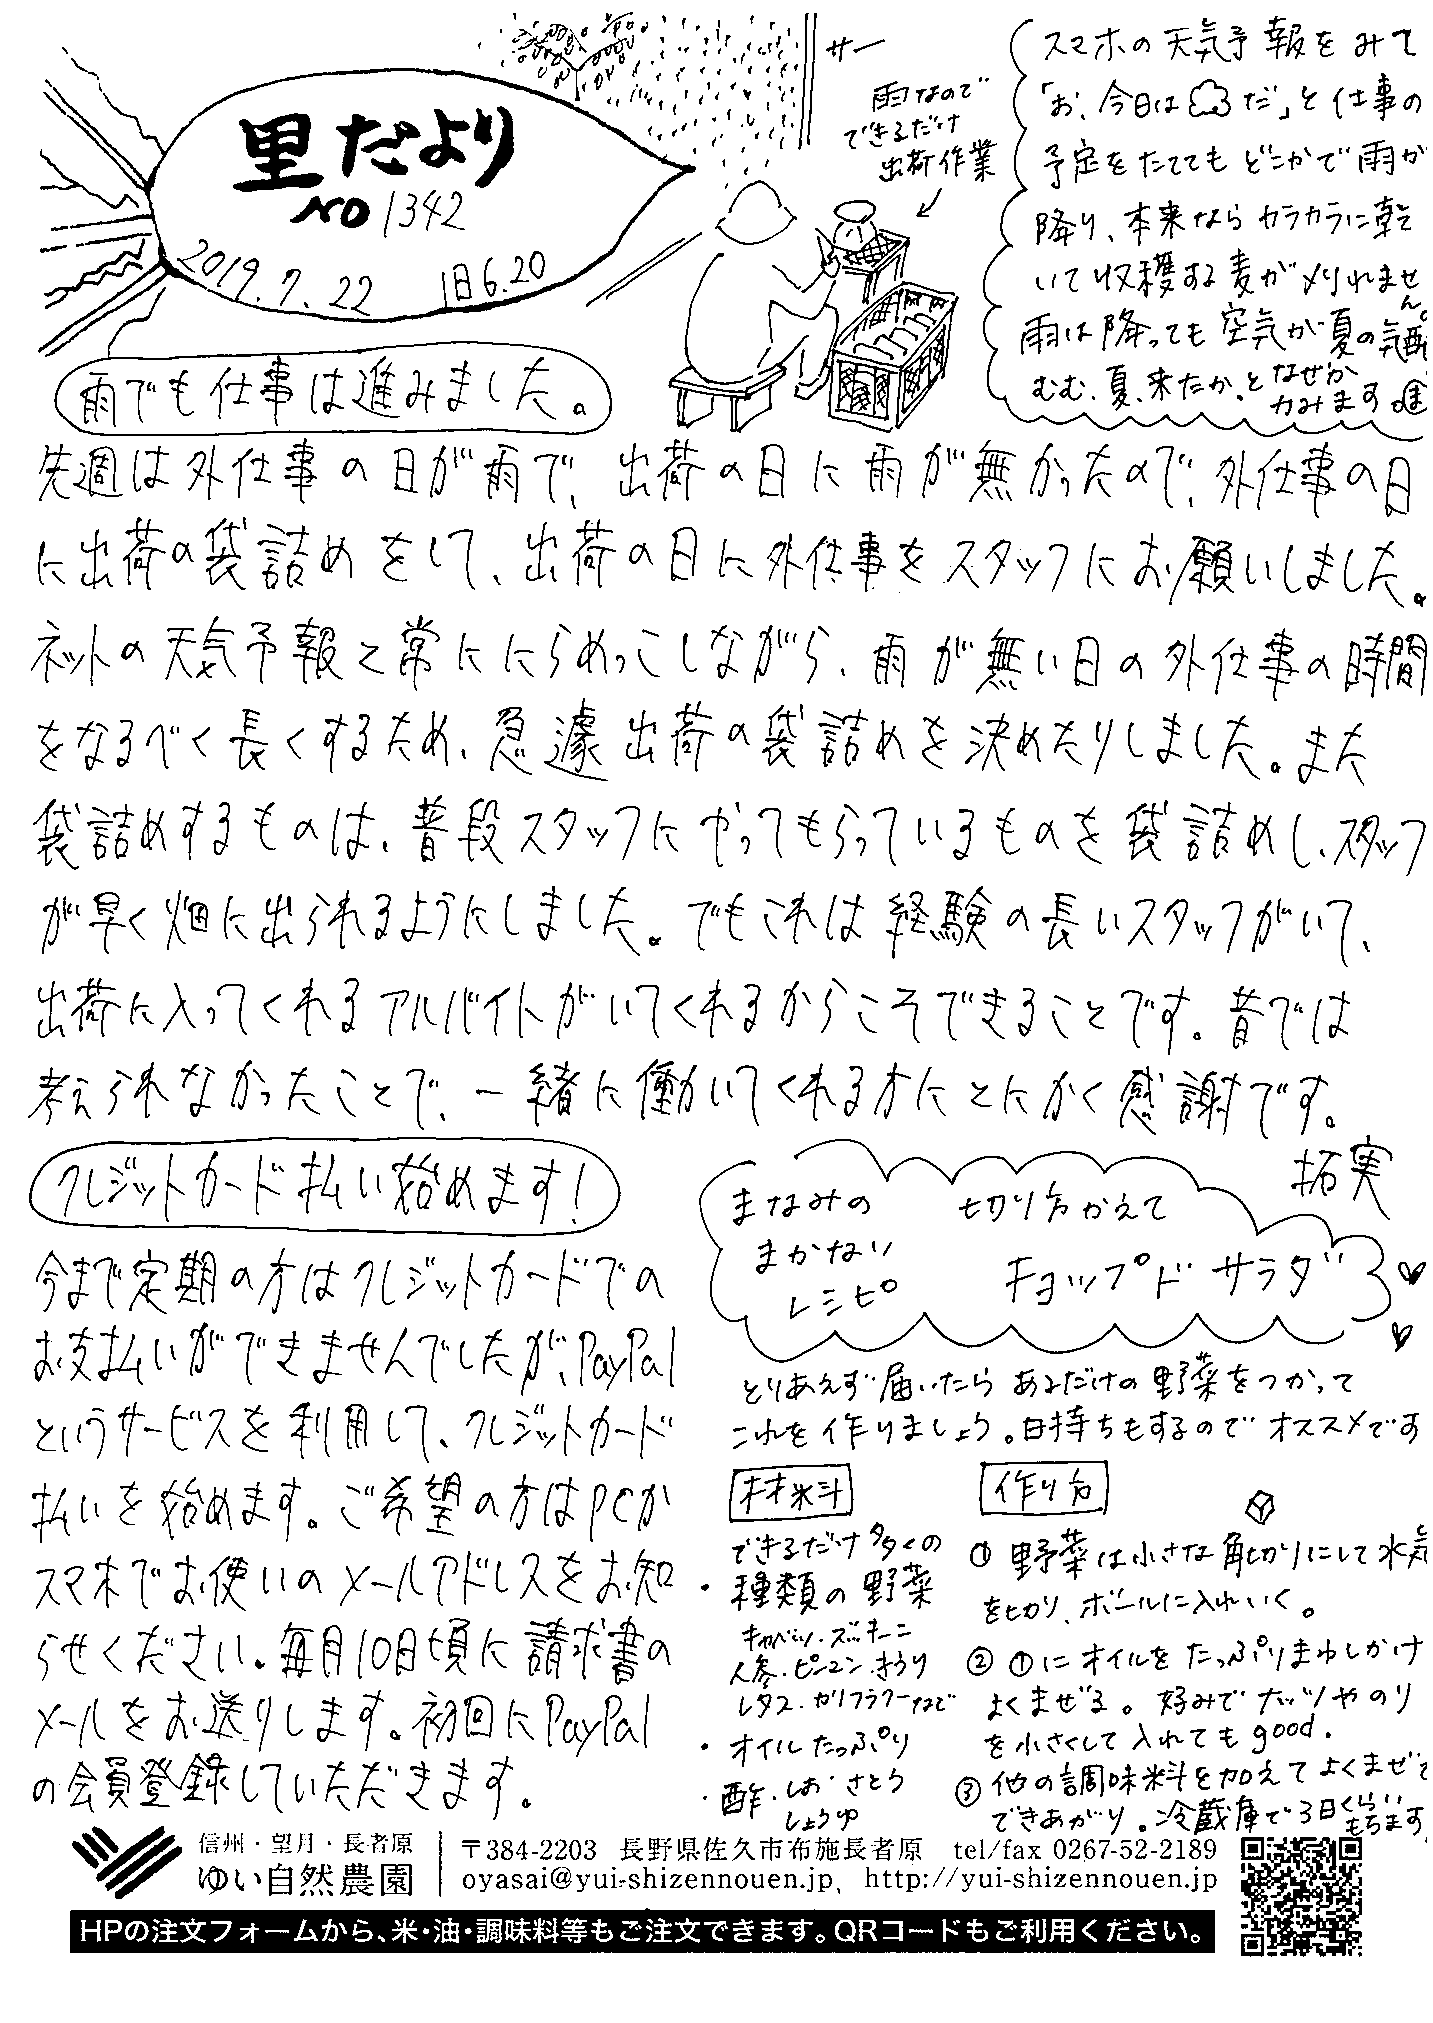 里だより
NO 1342
2019.7.22 1日6.20
サー
雨なので
できるだけ
出荷作業
スマホの天気予報をみて
「お、今日は だ」と仕事の
予定をたててもどこかで雨が
降り、本来ならカラカラに乾
いて収穫する麦が刈れませ
ん。
雨は降っても空気が夏の気配
むむ、夏、来たか。となぜか
力みます
雨でも仕事は進みました。
先週は外仕事の日が雨で、出荷の日に雨が無かったので、外仕事の日
に出荷の袋詰めをして、出荷の日に外仕事をスタッフにお願いしました。
ネットの天気予報と常ににらめっこしながら、雨が無い日の外仕事の時間
をなるべく長くするため、急遽出荷の袋詰めを決めたりしました。また
袋詰めするものは、普段スタッフにやってもらっているものを袋詰めし、スタッフ
が早く畑に出られるようにしました。でもこれは経験の長いスタッフがいて、
出荷に入ってくれるアルバイトがいてくれるからこそできることです。昔では
考えられなかったことで、一緒に働いてくれる方にとにかく感謝です。
拓実
クレジットカード払い始めます!
今まで定期の方はクレジットカードでの
お支払いができませんでしたが、PayPal
というサービスを利用して、クレジットカード
払いを始めます。ご希望の方はPCか
スマホでお使いのメールアドレスをお知
らせください。毎月10日頃に請求書の
メールをお送りします。初回にPayPal
の会員登録していただきます。
まなみの
まかない
レシピ
切り方かえて
チョップドサラダ
とりあえず届いたらあるだけの野菜をつかって
これを作りましょう。日持ちもするのでオススメです
材料
できるだけ多くの
・種類の野菜
キャベツ・ズッキーニ
人参・ピーマン・きうり
レタス・カリフラワーなど
・オイルたっぷり
・酢・しお・さとう
しょうゆ
作り方
① 野菜は小さな角切りにして水気
を切り、ボールに入れいく。
② ①にオイルをたっぷりまわしかけ
よくまぜる。好みでナッツやのり
を小さくして入れてもgood.
③ 他の調味料を加えてよくまぜて
できあがり。冷蔵庫で3日くらい
もちます。
信州・望月・長者原
ゆい自然農園
〒384-2203 長野県佐久市布施長者原 tel/fax 0267-52-2189
oyasai@yui-shizennouen.jp、http://yui-shizennouen.jp
HPの注文フォームから、米・油・調味料等もご注文できます。QRコードもご利用ください。